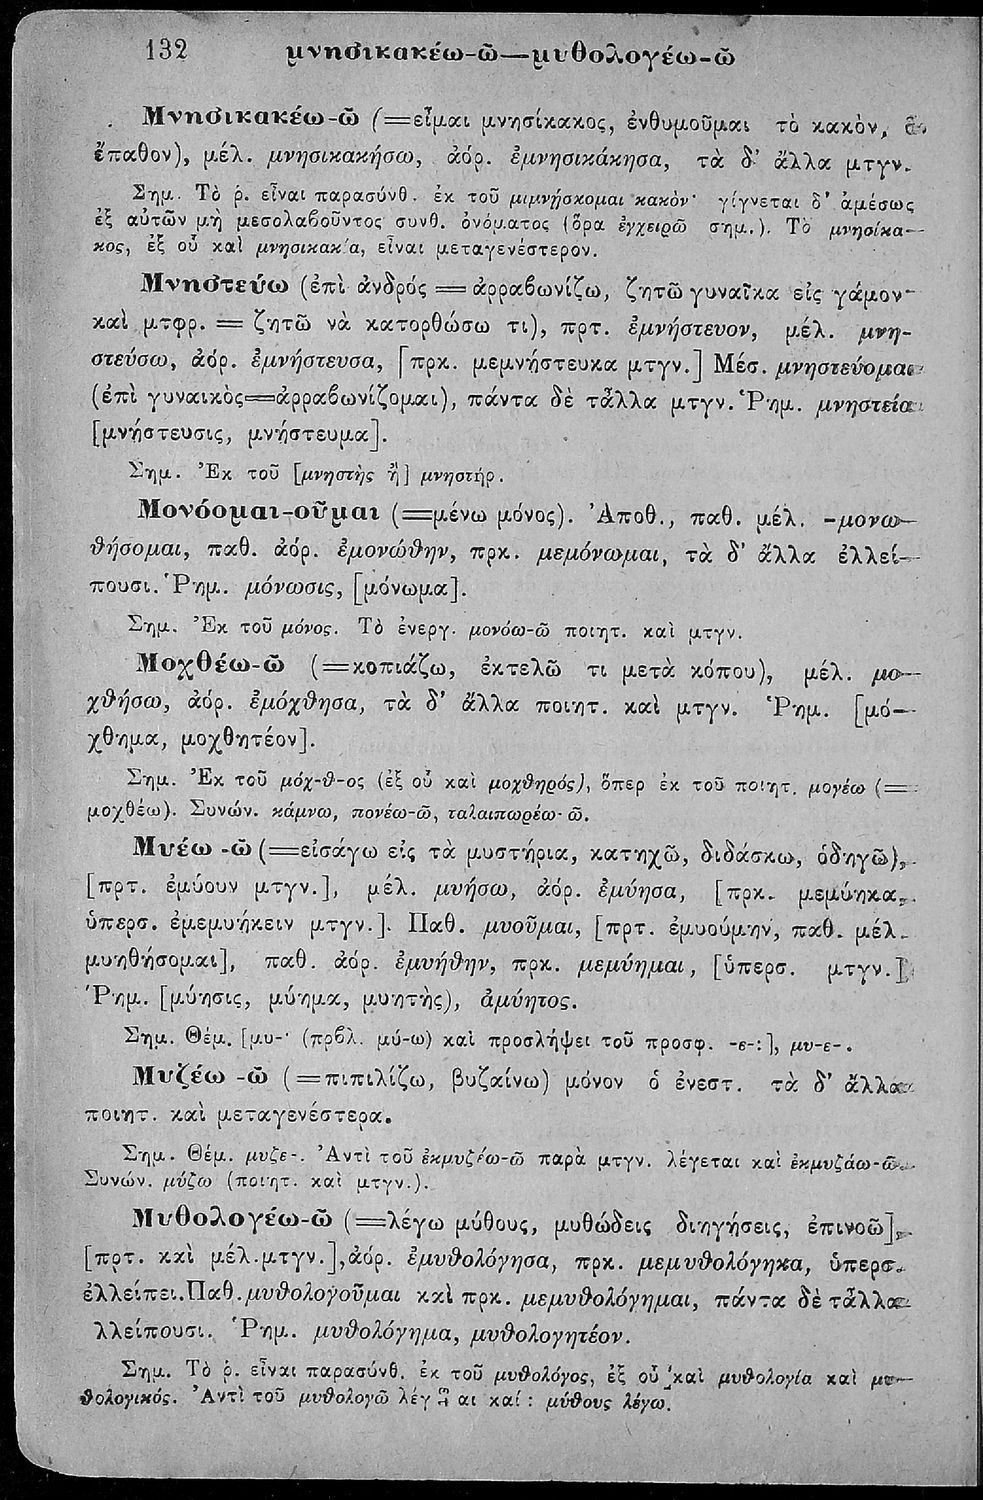 132 μνησικακέω-ῶ—μυθολογέω-ῶ
Μνησικακέω-ῶ (=εἶμαι μνησίκακος, ἐνθυμοῦμαι τὸ κακὸν,
ἔπαθον), μέλ. μνησικακήσω, ἀόρ. ἐμνησικάκησα, τὰ δ' ἄλλα μτγν.
Σημ. Τὸ ῥ. εἶναι παρασύνθ. ἐκ τοῦ μιμνήσκομαι κακὸν· γίγνεται δ' ἀμέσως
ἐξ αὐτῶν μὴ μεσολαβοῦντος συνθ. ὀνόματος (ὅρα ἐγχειρῶ σημ.). Τὸ μνησίκα-
κος, ἐξ οὗ καὶ μνησικακία, εἶναι μεταγενέστερον.
Μνηστεύω (ἐπὶ ἀνδρός = ἀρραβωνίζω, ζητῶ γυναῖκα εἰς γάμον·
καὶ μτφρ. = ζητῶ νὰ κατορθώσω τι), πρτ. ἐμνήστευον, μέλ. μνη-
στεύσω, ἀόρ. ἐμνήστευσα, [πρκ. μεμνήστευκα μτγν.] Μέσ. μνηστεύομαι
(ἐπὶ γυναικὸς=ἀρραβωνίζομαι), πάντα δὲ τἆλλα μτγν. Ῥημ. μνηστεία
[μνήστευσις, μνήστευμα].
Σημ. Ἐκ τοῦ [μνηστὴς ἢ] μνηστήρ.
Μονόομαι-οῦμαι (=μένω μόνος). Ἀποθ., παθ. μέλ. -μονω-
θήσομαι, παθ. ἀόρ. ἐμονώθην, πρκ. μεμόνωμαι, τὰ δ' ἄλλα ἐλλεί-
πουσι. Ῥημ. μόνωσις, [μόνωμα].
Σημ. Ἐκ τοῦ μόνος. Τὸ ἐνεργ. μονόω-ῶ ποιητ. καὶ μτγν.
Μοχθέω-ῶ (=κοπιάζω, ἐκτελῶ τι μετὰ κόπου), μέλ. μο-
χθήσω, ἀόρ. ἐμόχθησα, τὰ δ' ἄλλα ποιητ. καὶ μτγν. Ῥημ. [μό-
χθημα, μοχθητέον].
Σημ. Ἐκ τοῦ μόχ-θ-ος (ἐξ οὗ καὶ μοχθηρός), ὅπερ ἐκ τοῦ ποιητ. μογέω (=
μοχθέω). Συνών. κάμνω, πονέω-ῶ, ταλαιπωρέω-ῶ.
Μυέω -ῶ (=εἰσάγω εἰς τὰ μυστήρια, κατηχῶ, διδάσκω, ὁδηγῶ),
[πρτ. ἐμύουν μτγν.], μέλ. μυήσω, ἀόρ. ἐμύησα, [πρκ. μεμύηκα,
ὑπερσ. ἐμεμυήκειν μτγν.]. Παθ. μυοῦμαι, [πρτ. ἐμυούμην, παθ. μέλ.
μυηθήσομαι], παθ. ἀόρ. ἐμυήθην, πρκ. μεμύημαι, [ὑπερσ. μτγν.]
Ῥημ. [μύησις, μύημα, μυητὴς), ἀμύητος.
Σημ. Θέμ. [μυ-· (πρβλ. μύ-ω) καὶ προσλήψει τοῦ προσφ. -ε-:], μυ-ε-.
Μυζέω -ῶ (=πιπιλίζω, βυζαίνω) μόνον ὁ ἐνεστ. τὰ δ' ἄλλα
ποιητ. καὶ μεταγενέστερα.
Σημ. Θέμ. μυζε-. Ἀντὶ τοῦ ἐκμυζέω-ῶ παρὰ μτγν. λέγεται καὶ ἐκμυζάω-ῶ.
Συνών. μύζω (ποιητ. καὶ μτγν.).
Μυθολογέω-ῶ (=λέγω μύθους, μυθώδεις διηγήσεις, ἐπινοῶ],
[πρτ. καὶ μέλ.μτγν.],ἀόρ. ἐμυθολόγησα, πρκ. μεμυθολόγηκα, ὑπερσ.
ἐλλείπει.Παθ.μυθολογοῦμαι καὶ πρκ. μεμυθολόγημαι, πάντα δὲ τἆλλα
λλείπουσι. Ῥημ. μυθολόγημα, μυθολογητέον.
Σημ. Τὸ ῥ. εἶναι παρασύνθ. ἐκ τοῦ μυθολόγος, ἐξ οὗ καὶ μυθολογία καὶ μυ-
θολογικός. Ἀντὶ τοῦ μυθολογῶ λέγεται καί: μύθους λέγω.